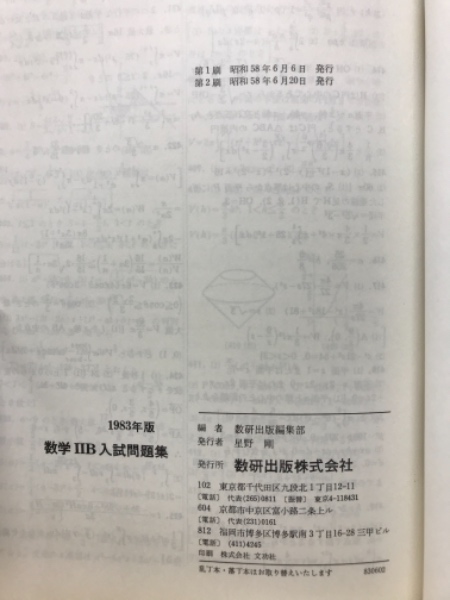 第1刷 昭和58年6月6日 発行
第2刷 昭和58年6月20日 発行
1983年版
数学ⅡB入試問題集
編者 数研出版編集部
発行者 星野剛
発行所 数研出版株式会社
102 東京都千代田区九段北1丁目12-11
〔電話〕 代表(265)0811 〔振替〕 東京4-118431
604 京都市中京区富小路二条上ル
〔電話〕 代表(231)0161
812 福岡市博多区博多駅南3丁目16-28 三甲ビル
〔電話〕 (411)4245
印刷 株式会社 文功社
乱丁本・落丁本はお取り替えいたします 830602